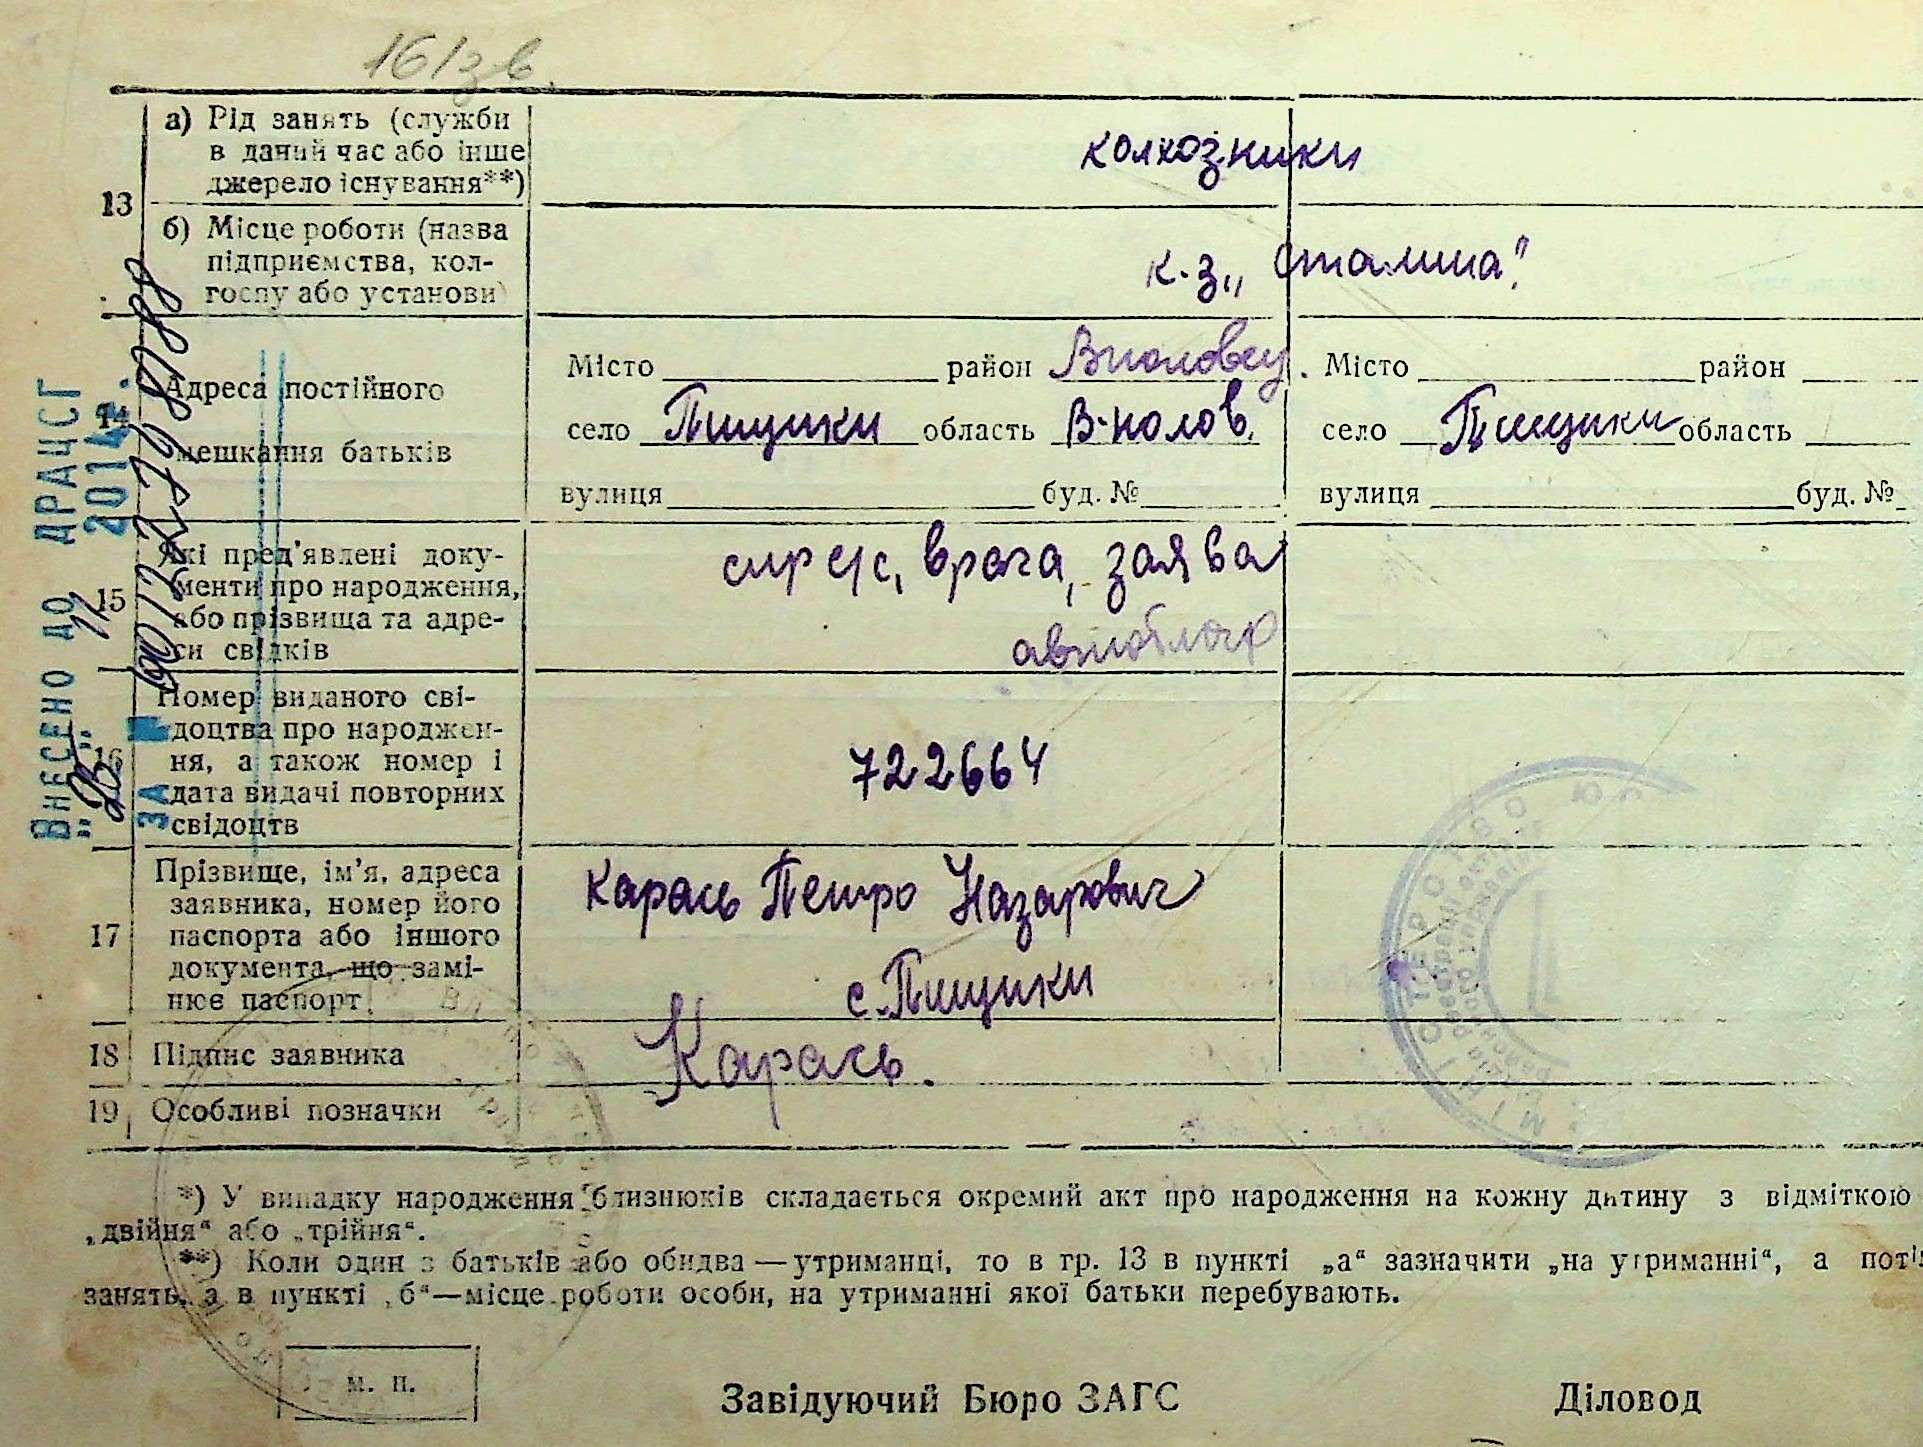 161зв.
а) Рід занять (служби
в даний час або інше
джерело існування**)
колхозники
13
б) Місце роботи (назва
підприємства, кол-
госпу або установи)
к-з „Сталина“.
14
Адреса постійного
мешкання батьків
Місто район
село Пищики область
вулиця буд. №
Місто район
село Пищики область
вулиця буд. №
15
Які пред’явлені доку-
менти про народження,
або прізвища та адре-
си свідків
врача, заява
16
Номер виданого сві-
доцтва про народжен-
ня, а також номер і
дата видачі повторних
свідоцтв
722664
17
Прізвище, ім’я, адреса
заявника, номер його
паспорта або іншого
документа, що замі-
нює паспорт
Карась Петро Назарович
с. Пищики
18 Підпис заявника
Карась.
19 Особливі позначки
ВНЕСЕНО ДО ДРАЦСГ
2014
ЗА №
*) У випадку народження близнюків складається окремий акт про народження на кожну дитину з відміткою
„двійня“ або „трійня“.
**) Коли один з батьків або обидва — утриманці, то в гр. 13 в пункті „а“ зазначити „на утриманні“, а
занять, а в пункті „б“—місце роботи особи, на утриманні якої батьки перебувають.
м. п.
Завідуючий Бюро ЗАГС
Діловод